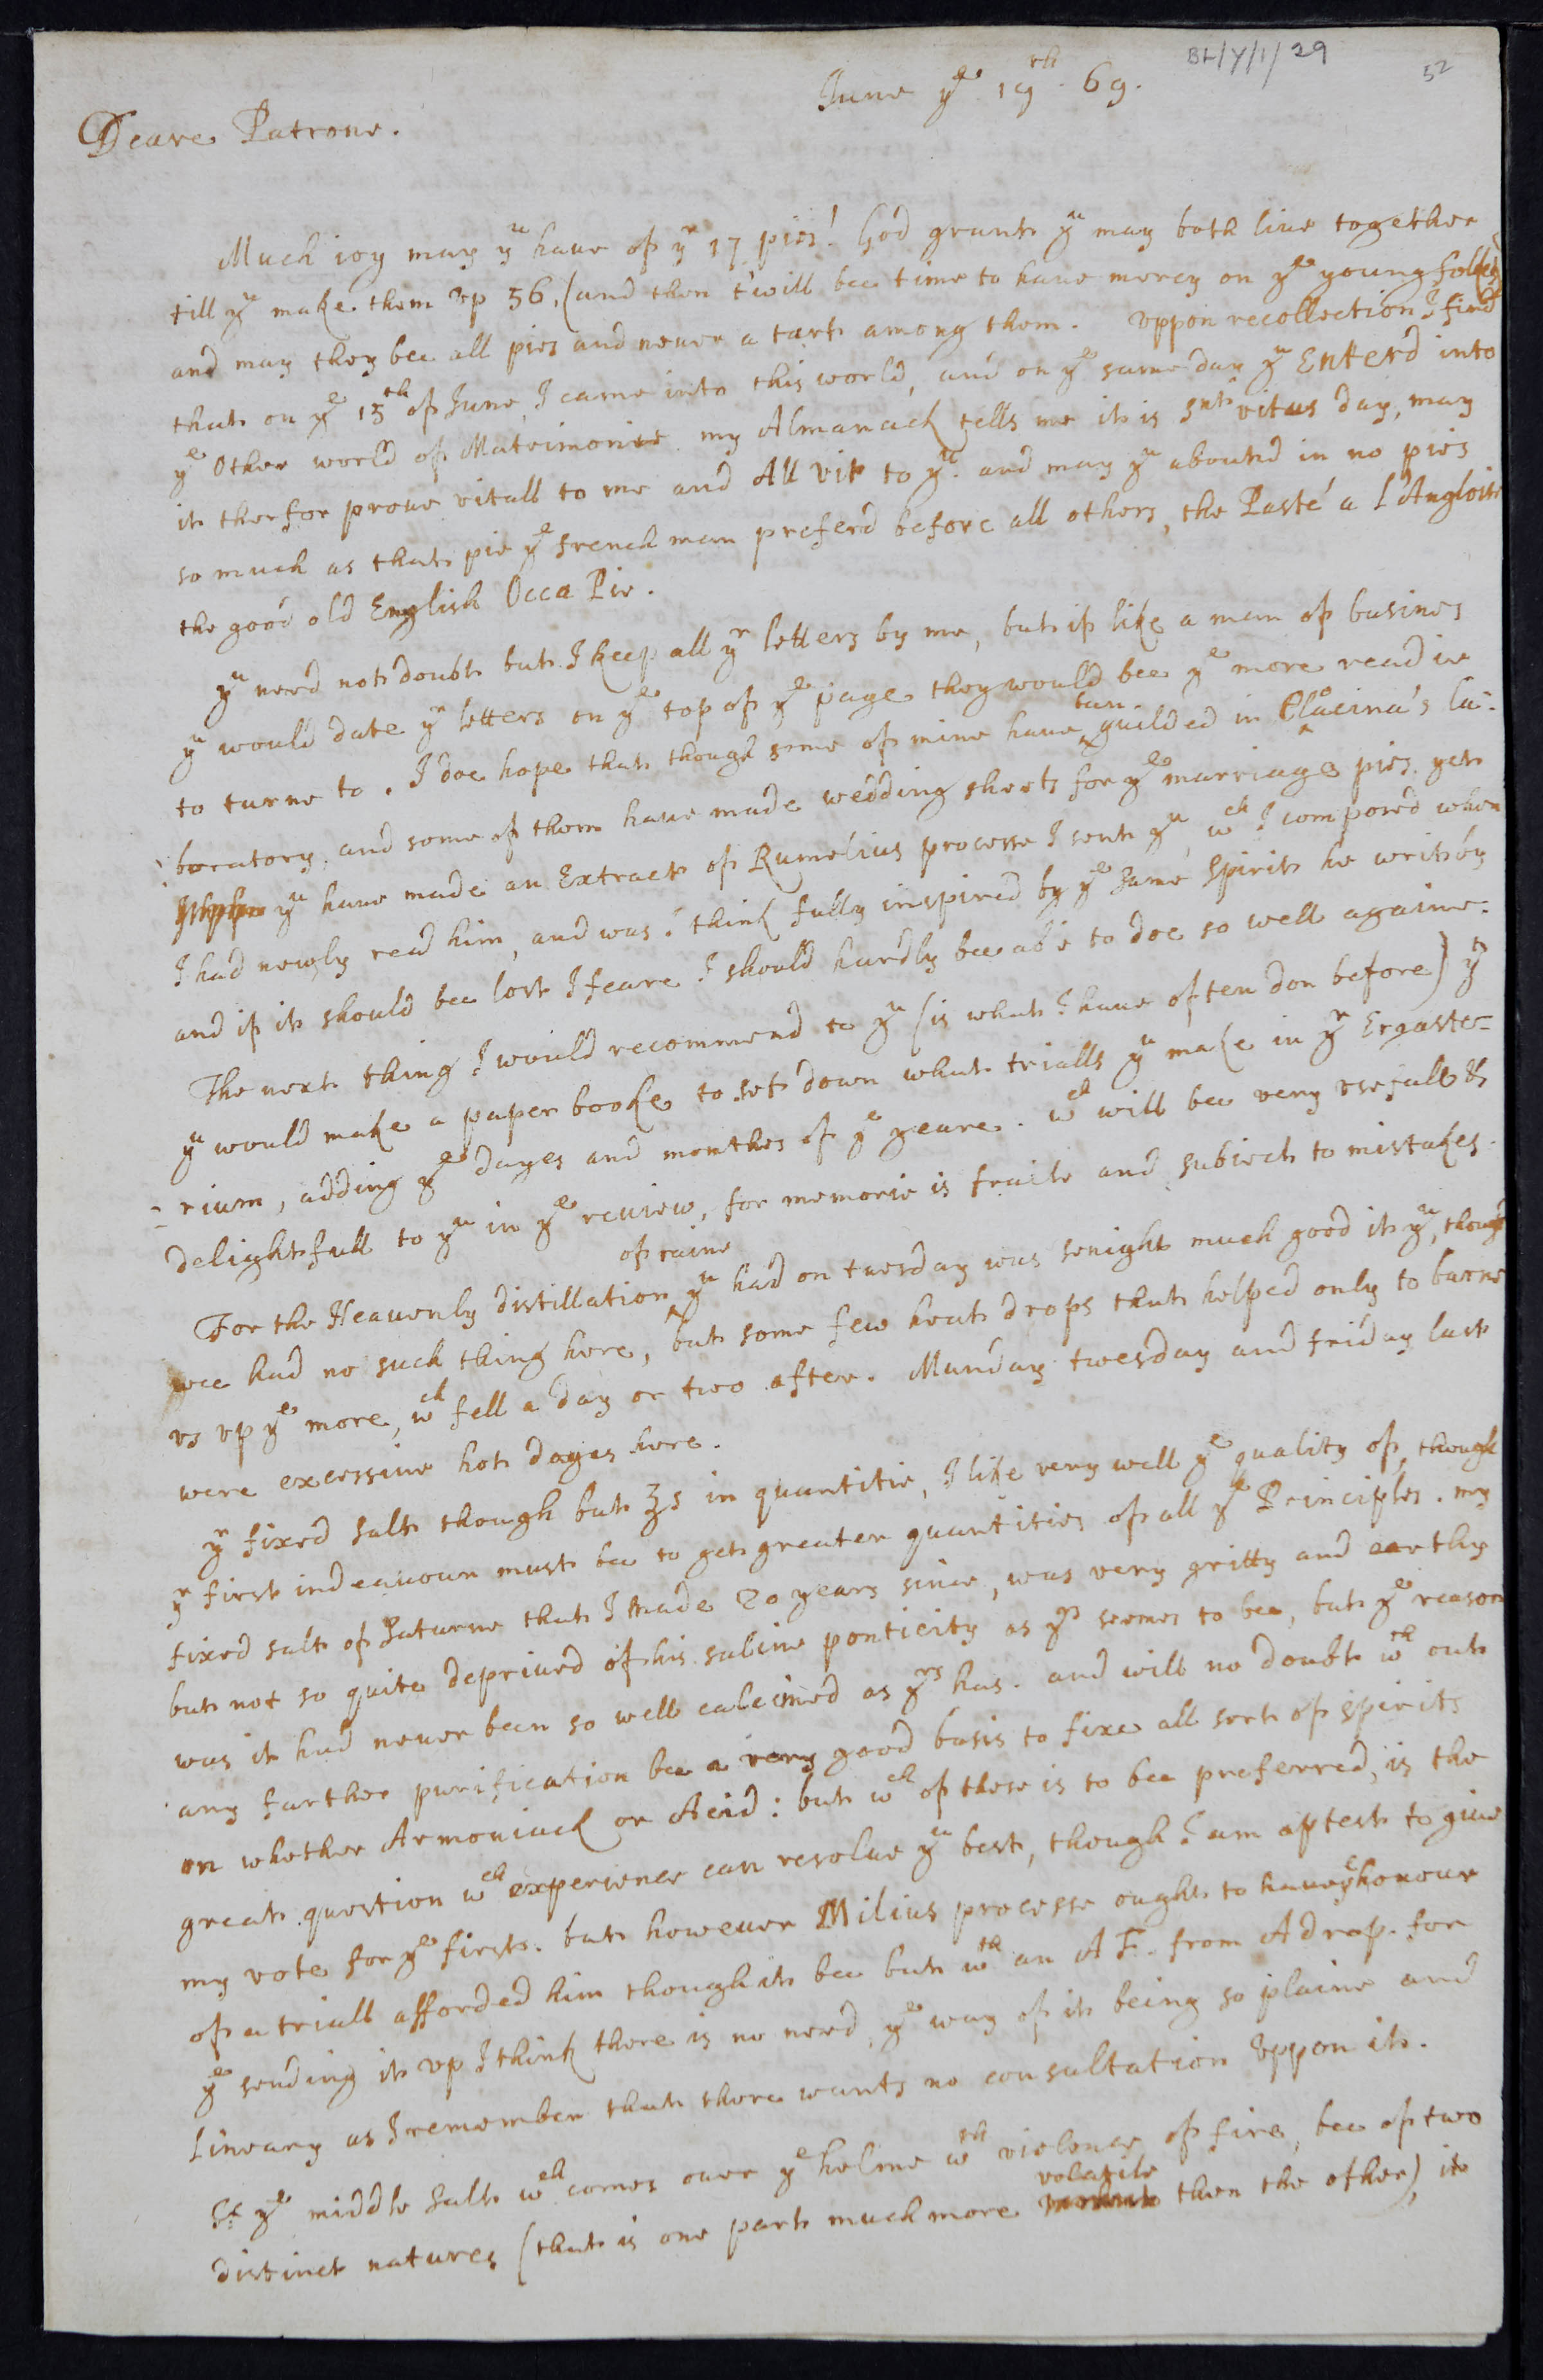 BL/Y/1/29
52
June yͤ 19ᵗʰ. 69.
Deare Patrone.
Much ioy may yᵘ haue of yʳ 17 pies! God grant yᵘ may both liue together
till yᵘ make them vp 56, (and then t'will bee time to haue mercy on yͤ young folkes)
and may they bee all pies and neuer a tart among them. Vppon recollection I find
that on yͤ 15ᵗʰ of June, I came into this world, and on yͤ same day yᵘ Enter'd into
yͤ Other world of Matrimonie my Almanack tells me it is Sⁿᵗ vitus day, may
it therfor proue vitall to me and All vit to yᵘ. and may yᵘ abound in no pies
so much as that pie yͤ french man prefer'd before all others, the Pasté a L'Angloise
the good old English Occa Pie.
yᵘ need not doubt but I keep all yʳ letters by me, but if like a man of busines
yᵘ would date yʳ letters on yͤ top of yͤ page they would bee yͤ more readie
to turne to. I doe hope that though some of mine haue ‸ guilded in Cloacina's La-
ben
boratory, and some of them haue made wedding sheets for yͤ marriage pies. yet
yᵘ haue made an Extract of Rumelius processe I sent yᵘ, wᶜʰ I compos'd when
I had newly read him, and was I think fully inspired by yͤ same Spirit he writ by
and if it should bee lost I feare I should hardly bee able to doe so well againe.
The next thing I would recommend to yᵘ (is what I have often don before) yᵗ
yᵘ would make a paper booke to set down what trialls yᵘ make in yʳ Ergaste-
-rium, adding yͤ dayes and monthes of yͤ yeare. wᶜʰ will bee very vsefull &
delightfull to yᵘ in yͤ reuiew, for memorie is fraile and subiect to mistakes.
For the Heauenly distillation ‸ yᵘ had on tuesday was senight much good it yᵘ, though
of raine
wee had no such thing here, but some few heat drops that helped only to burne
vs vp yͤ more, wᶜʰ fell a day or two after. Munday twesday and friday last
were excessiue hot dayes here.
yʳ fixed salt though but ℥5 in quantitie, I like very well yͤ quality of, though
yʳ first indeauour must bee to get greater quantities of all yͤ Principles. my
fixed salt of Saturne that I made 20 years since, was very gritty and earthy
but not so quite depriued of his saline ponticity as yʳˢ seemes to bee, but yͤ reason
was it had neuer been so well calcined as yʳˢ has. and will no doubt wᵗʰ out
any further purification bee a very good basis to fixe all sort of spirits
on whether Armoniack or Acid: but wᶜʰ of these is to bee preferred, is the
great question wᶜʰ experience can resolue yᵘ best, though I am aptest to giue
my vote for yͤ first. but however Milius processe ought to haue yͤ honour
of a triall afforded him though it bee but wᵗʰ an A F. from Adrop. for
yͤ sending it vp I think there is no need, yͤ way of it being so plaine and
lineary as I remember that there wants no consultation Vppon it.
If yͤ middle salt wᶜʰ comes ouer yͤ helme wᵗʰ violence of fire, bee of two
distinct natures (that is one part much more volatile then the other) it